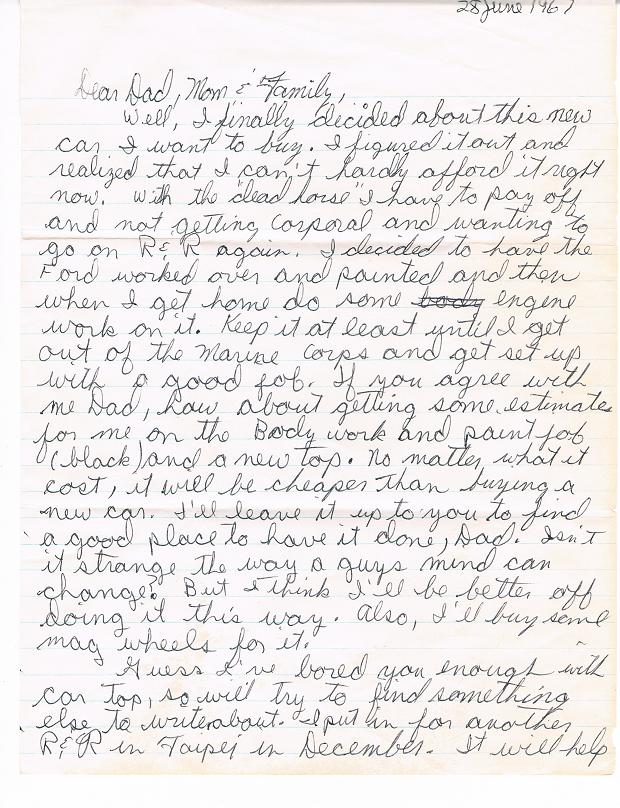 28 June 1967
Dear Dad, Mom & Family,
Well, I finally decided about this new
car I want to buy. I figured it out and
realized that I can't hardly afford it right
now. With the "dead horse" I have to pay off
and not getting Corporal and wanting to
go on R&R again. I decided to have the
Ford worked over and painted and then
when I get home do some body engine
work on it. Keep it at least until I get
out of the Marine Corps and get set up
with a good job. If you agree with
me Dad, how about getting some estimates
for me on the Body work and paint job
(black) and a new top. No matter what it
cost, it will be cheaper than buying a
new car. I'll leave it up to you to find
a good place to have it done, Dad. Isn't
it strange the way a guys mind can
change? But I think I'll be better off
doing it this way. Also, I'll buy some
mag wheels for it.
Guess I've bored you enough with
car top, so will try to find something
else to write about. I put in for another
R&R in Taipei in December. It will help